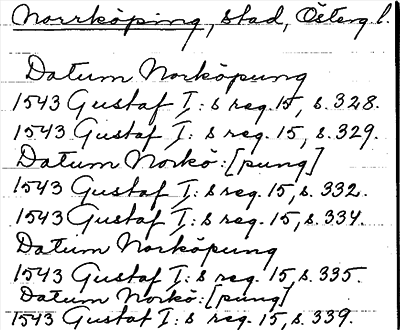 Norrköping, stad, Österg l.
Datum Norköpung
1543 Gustaf I:s reg. 15, s. 328.
1543 Gustaf I:s reg. 15, s. 329.
Datum Norkö:[pung]
1543 Gustaf I:s reg. 15, s. 332.
1543 Gustaf I:s reg. 15, s. 334.
Datum Norköpung
1543 Gustaf I:s reg. 15, s. 335.
Datum Norkö:[pung]
1543 Gustaf I:s reg. 15, s. 339.